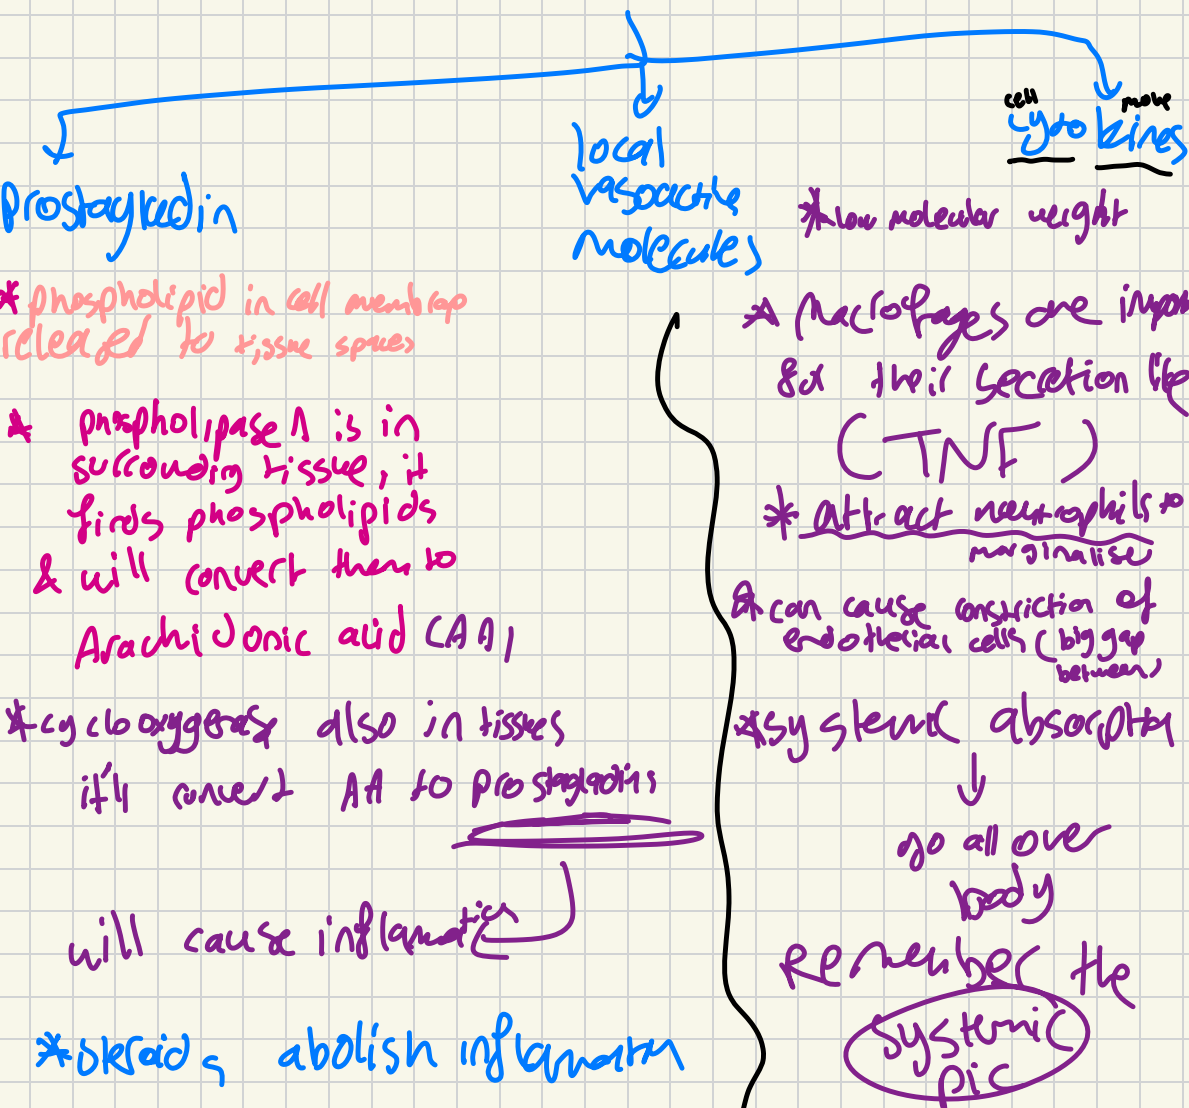 cell move
cyto kines
local
vasoactive
molecules
prostagladin
* phospholipid in cell membrane
released to tissue spaces
* phospholipase A is in
surrounding tissue, it
finds phospholipids
& will convert them to
Arachidonic acid (AA)
* cyclooxygenase also in tissues
it'll convert AA to prostagladins
will cause inflamation
* steroids abolish inflamation
* low molecular weight
* Macrophages are impor
for their secretion like
(TNF)
* attract neutrophils to
marginalise
* can cause constriction of
endothelial cells (big gap
between)
* systemic absorption
go all over
body
Remember the
systemic
pic